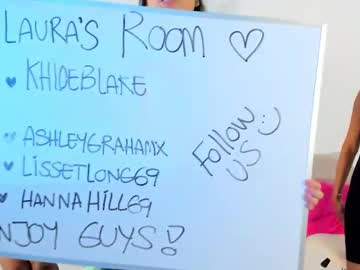 LAURA'S ROOM ♡
♥ KHLOEBLAKE
♥ ASHLEYGRAHAMX
♥ LISSETLONG69
♥ HANNAHILL69
FOLLOW
US :)
NJOY GUYS!